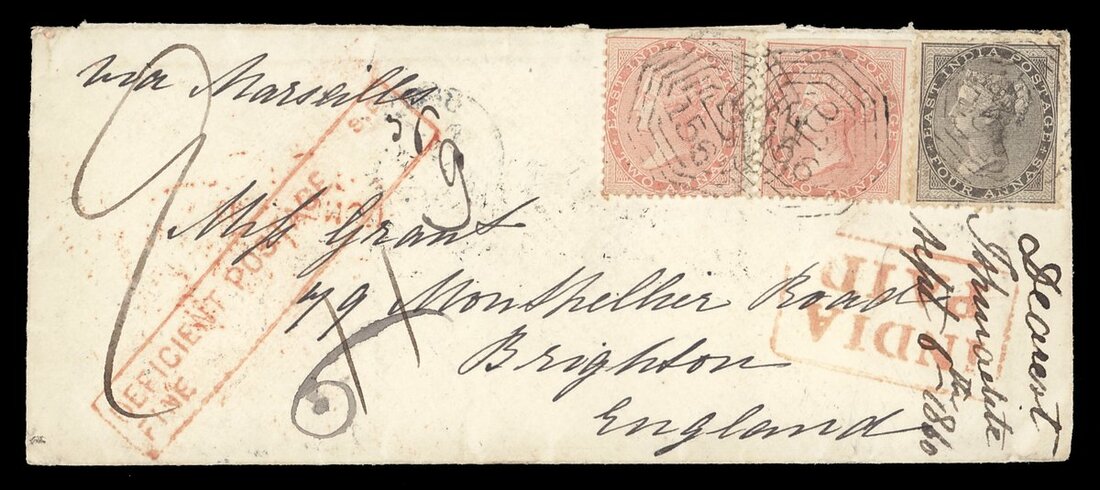 via Marseilles
Miss Grant
79 Montpellier Road
Brighton
England
EAST INDIA POSTAGE
TWO ANNAS
EAST INDIA POSTAGE
TWO ANNAS
EAST INDIA POSTAGE
FOUR ANNAS
156
156
DEFICIENT POSTAGE
FINE
INDIA
PAID
Dearest
Sept 6th 1860
9
6